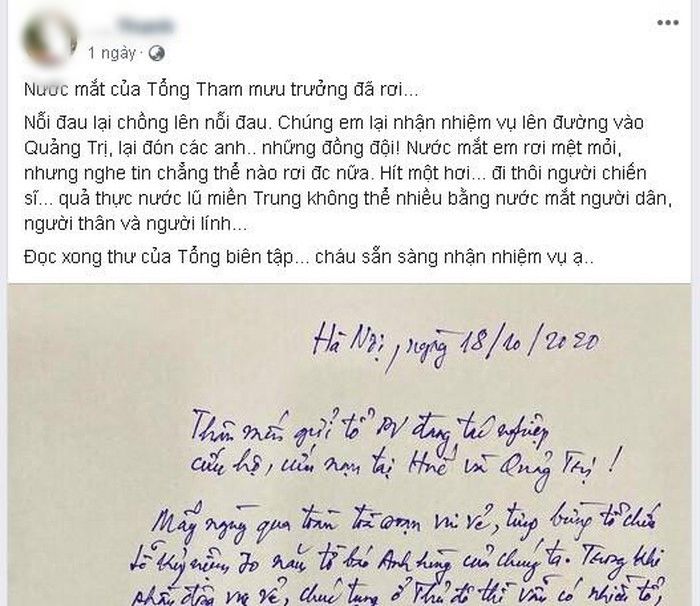 1 ngày ·
Nước mắt của Tổng Tham mưu trưởng đã rơi...
Nỗi đau lại chồng lên nỗi đau. Chúng em lại nhận nhiệm vụ lên đường vào
Quảng Trị, lại đón các anh.. những đồng đội! Nước mắt em rơi mệt mỏi,
nhưng nghe tin chẳng thể nào rơi đc nữa. Hít một hơi... đi thôi người chiến
sĩ... quả thực nước lũ miền Trung không thể nhiều bằng nước mắt người dân,
người thân và người lính...
Đọc xong thư của Tổng biên tập... cháu sẵn sàng nhận nhiệm vụ ạ..
Hà Nội, ngày 18/10/2020
Thân mến gửi tổ PV đang tác nghiệp
cứu hộ, cứu nạn tại Huế và Quảng Trị!
Mấy ngày qua toàn tòa soạn vui vẻ, tưng bừng tổ chức
lễ kỷ niệm 70 năm tờ báo Anh hùng của chúng ta. Trong khi
phấn động vui vẻ, chúc tụng ở Thủ đô thì vẫn có nhiều tổ,